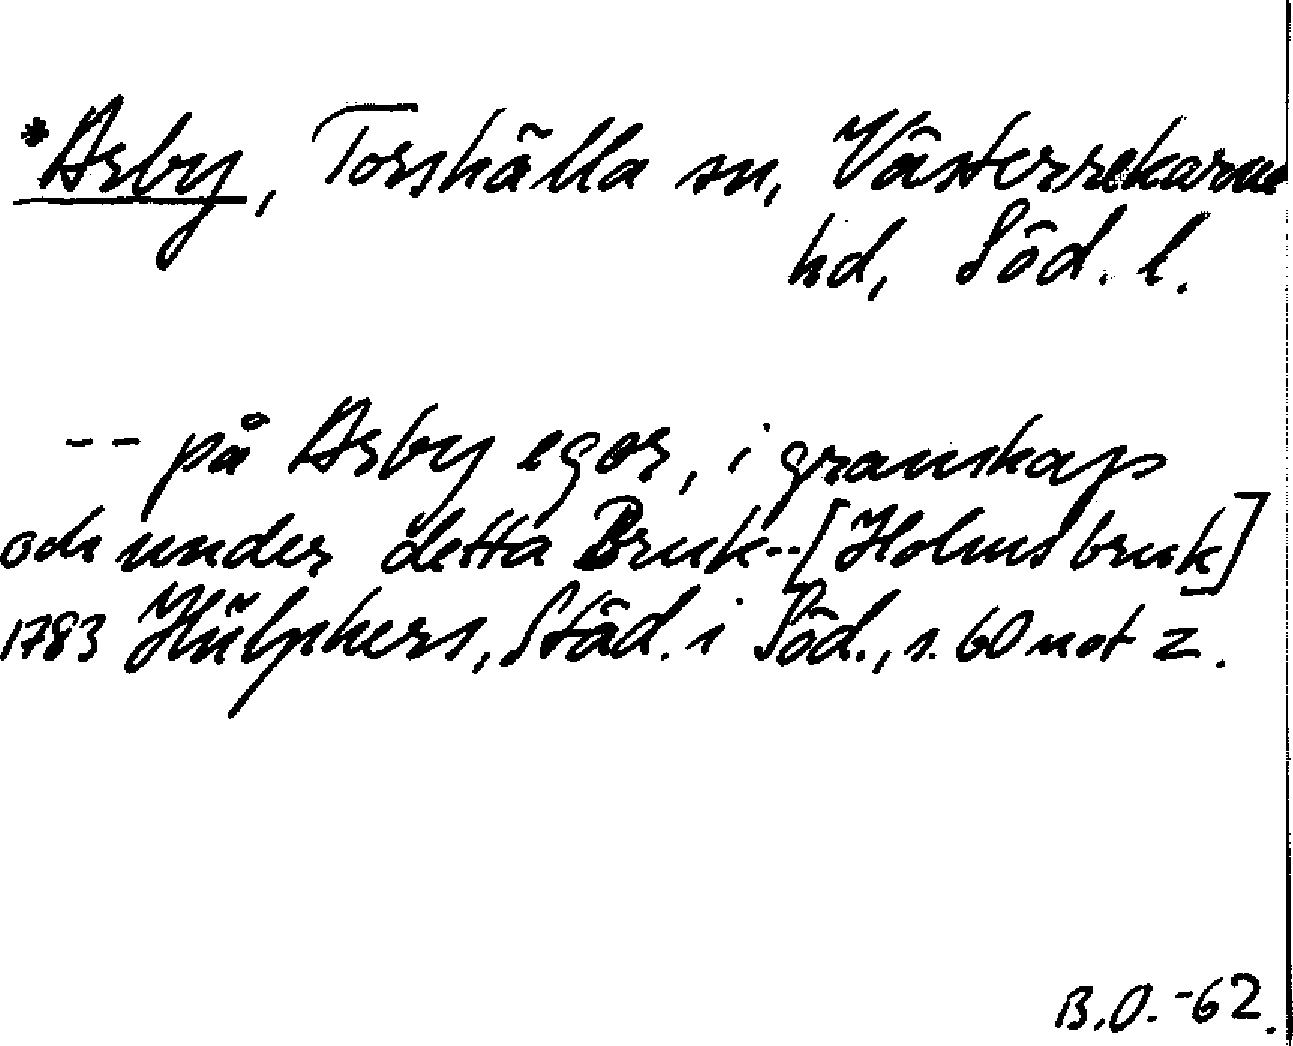 *Arby, Torshälla sn, Västerrekarne
hd, Söd. l.
-- på Arby egor, i granskap
och under detta Bruk--[Holmsbruk]
1783 Hülphers, Städ. i Söd., s. 60 not z.
B.O.-62.